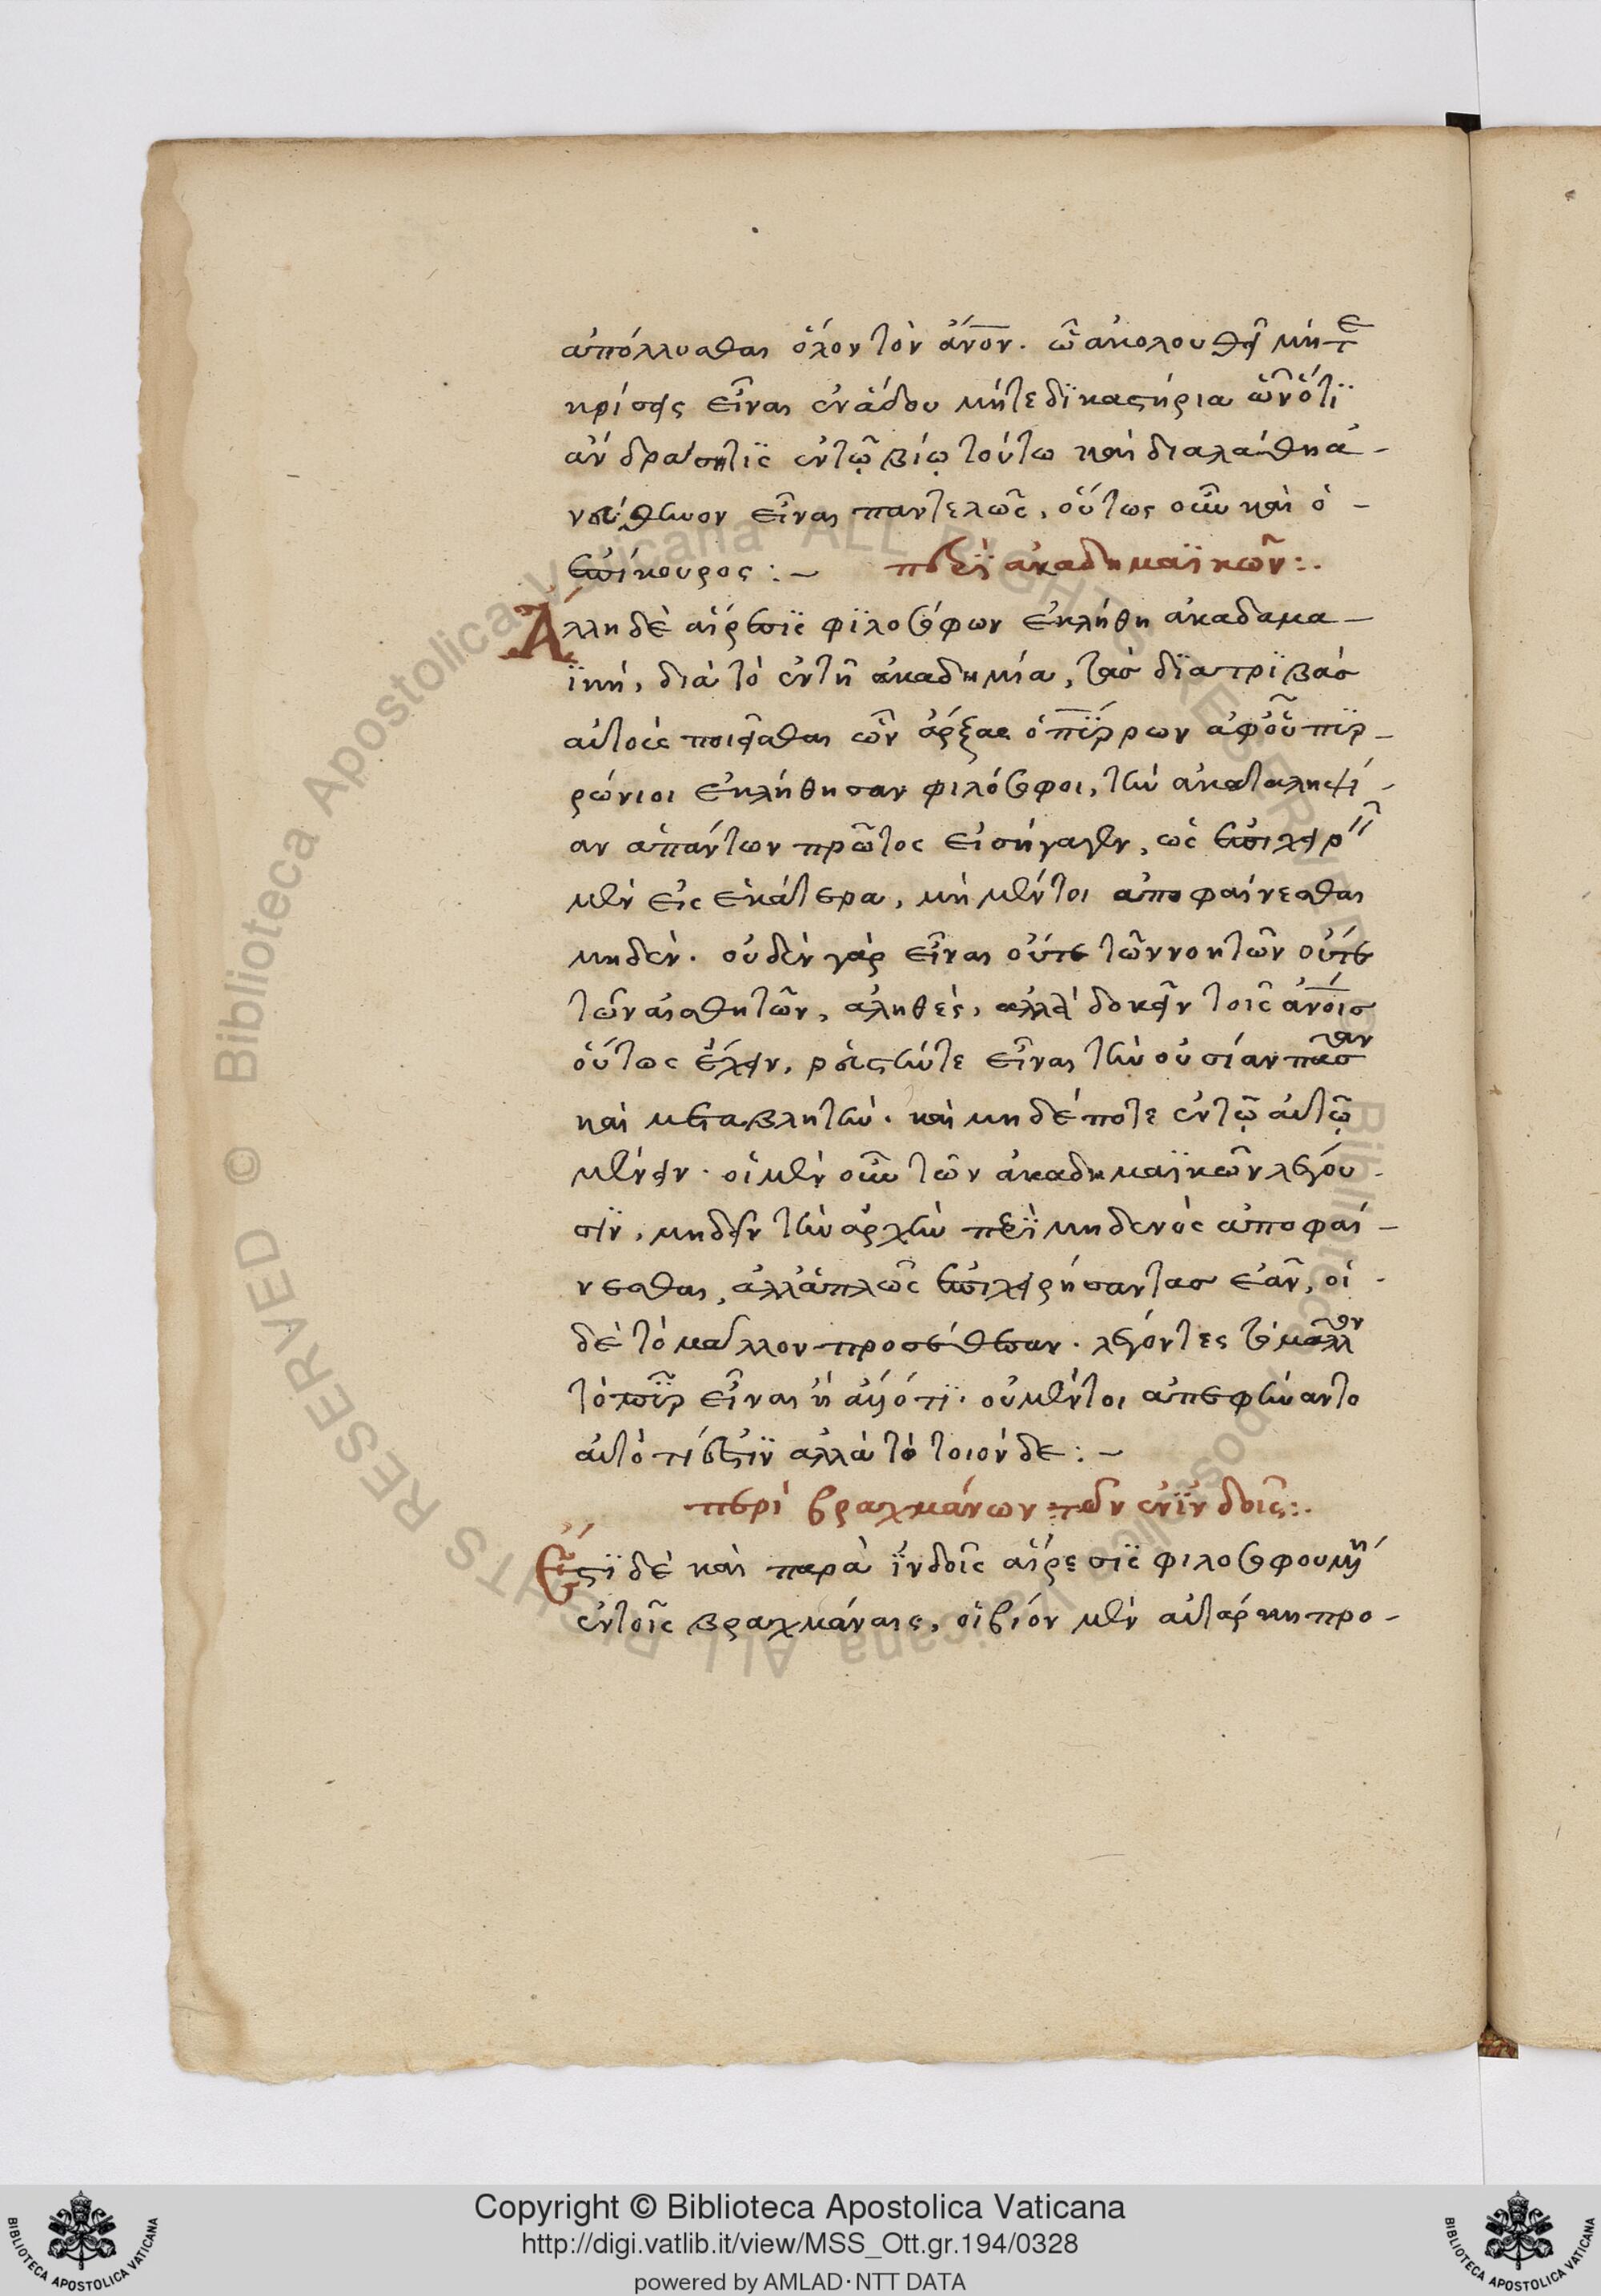 ἀπόλλυσθαι ὅλον τὸν ἄνον. ὧ ἀκολουθεῖ μήτε
κρίσεις εἶναι ἐν ἅδου μήτε δϊκαστήρια ὧν ὅτϊ
ἂν δράσητϊς ἐντῷ βίῳ τούτω καὶ διαλάθη ἀ-
νεύθυνον εἶναι παντελῶς, οὕτως οὖν καὶ ὁ -
ἐπίκουρος :- περὶ ἀκαδημαϊκῶν :.
Ἄλλη δὲ αἵρεσϊς φϊλοσόφων ἐκλήθη ἀκαδαμα-
ϊκή, διὰ τὸ ἐντῆ ἀκαδημία, τὰς δϊατρϊβὰς
αὐτοὺς ποιεῖσθαι ὧν ἄρξας ὁ πΰρρων ἀφ' οὗ πϋρ-
ρώνιοι ἐκλήθησαν φιλόσοφοι, τὴν ἀκαταληψί-
αν ἁπάντων πρῶτος εἰσήγαγεν, ὡς ἐπιχειρ
μὲν εἰς ἑκάτερα, μὴ μέντοι ἀποφαίνεσθαι
μηδέν. οὐδὲν γὰρ εἶναι οὔτε τῶν νοητῶν οὔτε
τῶν αἰσθητῶν, ἀληθές, ἀλλὰ δοκεῖν τοῖς ἀνοις
οὕτως ἔχειν, ῥευστήν τε εἶναι τὴν οὐσίαν πᾶσαν
καὶ μεταβλητήν. καὶ μηδέποτε ἐντῷ αὐτῷ
μένειν. οἱ μὲν οὖν τῶν ἀκαδημαϊκῶν λέγου-
σϊν, μηδεῖν τὴν ἀρχὴν περὶ μηδενὸς ἀποφαί-
νεσθαι, ἀλλ' ἁπλῶς ἐπιχειρήσαντας ἐᾶν, οἱ -
δὲ τὸ μᾶλλον προσέθεσαν. λέγοντες οὐ μᾶλλον
τὸ πῦρ εἶναι ἢ ἄλλό τϊ. οὐ μέντοι ἀπεφήναντο
αὐτὸ τί ἐστϊν ἀλλὰ τὸ τοιόνδε :-
περὶ βραχμάνων τῶν ἐν ἰνδοῖς :.
Ἔστϊ δὲ καὶ παρὰ ἰνδοῖς αἵρεσϊς φιλοσοφουμ
ἐντοῖς βραχμάναις, οἳ βίον μὲν αὐτάρκη προ-
Copyright © Biblioteca Apostolica Vaticana
http://digi.vatlib.it/view/MSS_Ott.gr.194/0328
powered by AMLAD·NTT DATA